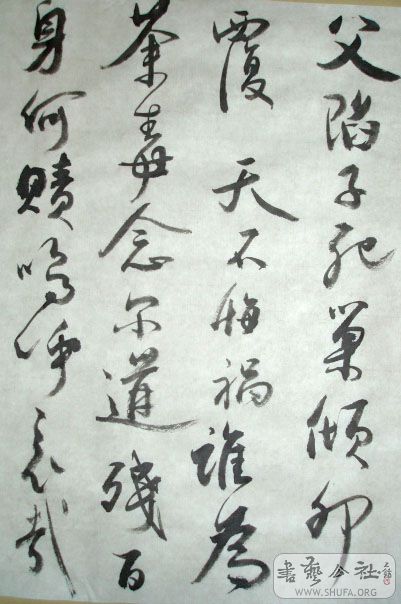 父陷子死巢傾卵
覆天不悔禍誰為
荼毒念尔遘殘百
身何贖嗚呼哀哉
書藝公社
WWW.SHUFA.ORG